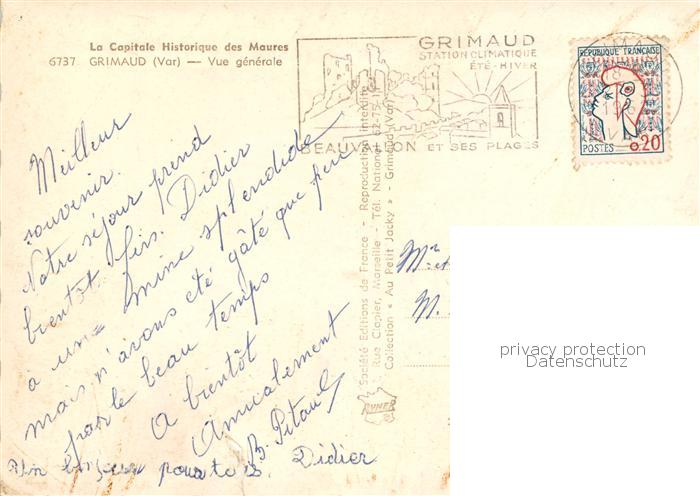 La Capitale Historique des Maures
6737 GRIMAUD (Var) — Vue générale
GRIMAUD
STATION CLIMATIQUE
ÉTÉ - HIVER
BEAUVALLON ET SES PLAGES
RÉPUBLIQUE FRANÇAISE
POSTES 0,20
Meilleur
souvenir.
Notre séjour prend
bientôt fin. Didier
a une mine splendide
mais n'avons été gâté que peu
par le beau temps
A bientôt
Amicalement
B. Pitaul
pour Didier
Société Editions de France - Reproduction interdite
Rue Clapier, Marseille - Tél. National
Collection « Au Petit Jacky » - Grimaud (Var)
Mr et
M.
privacy protection
Datenschutz